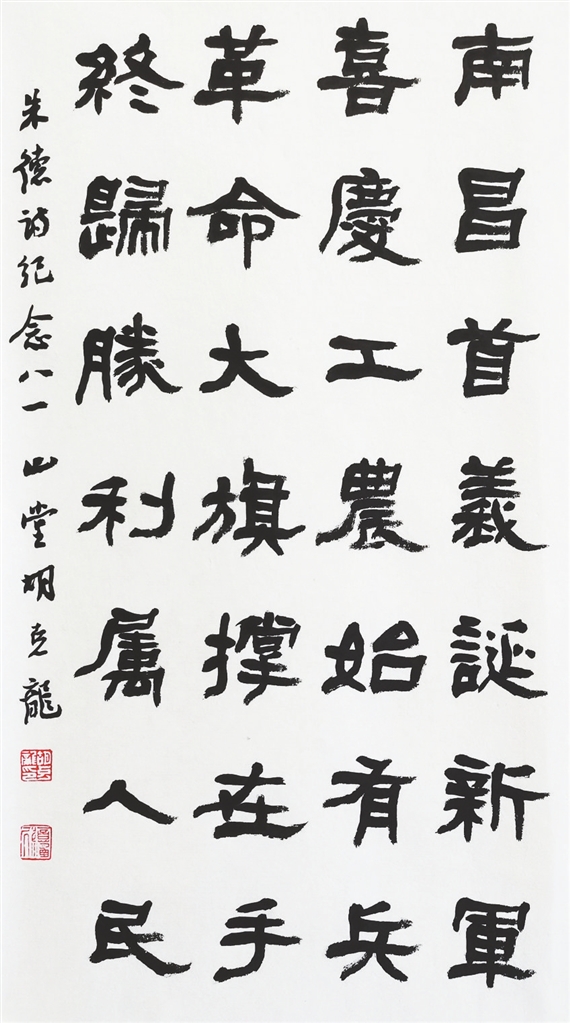 南昌首義誕新軍
喜慶工農始有兵
革命大旗撐在手
終歸勝利属人民
朱德詩紀念八一 山堂胡克龍